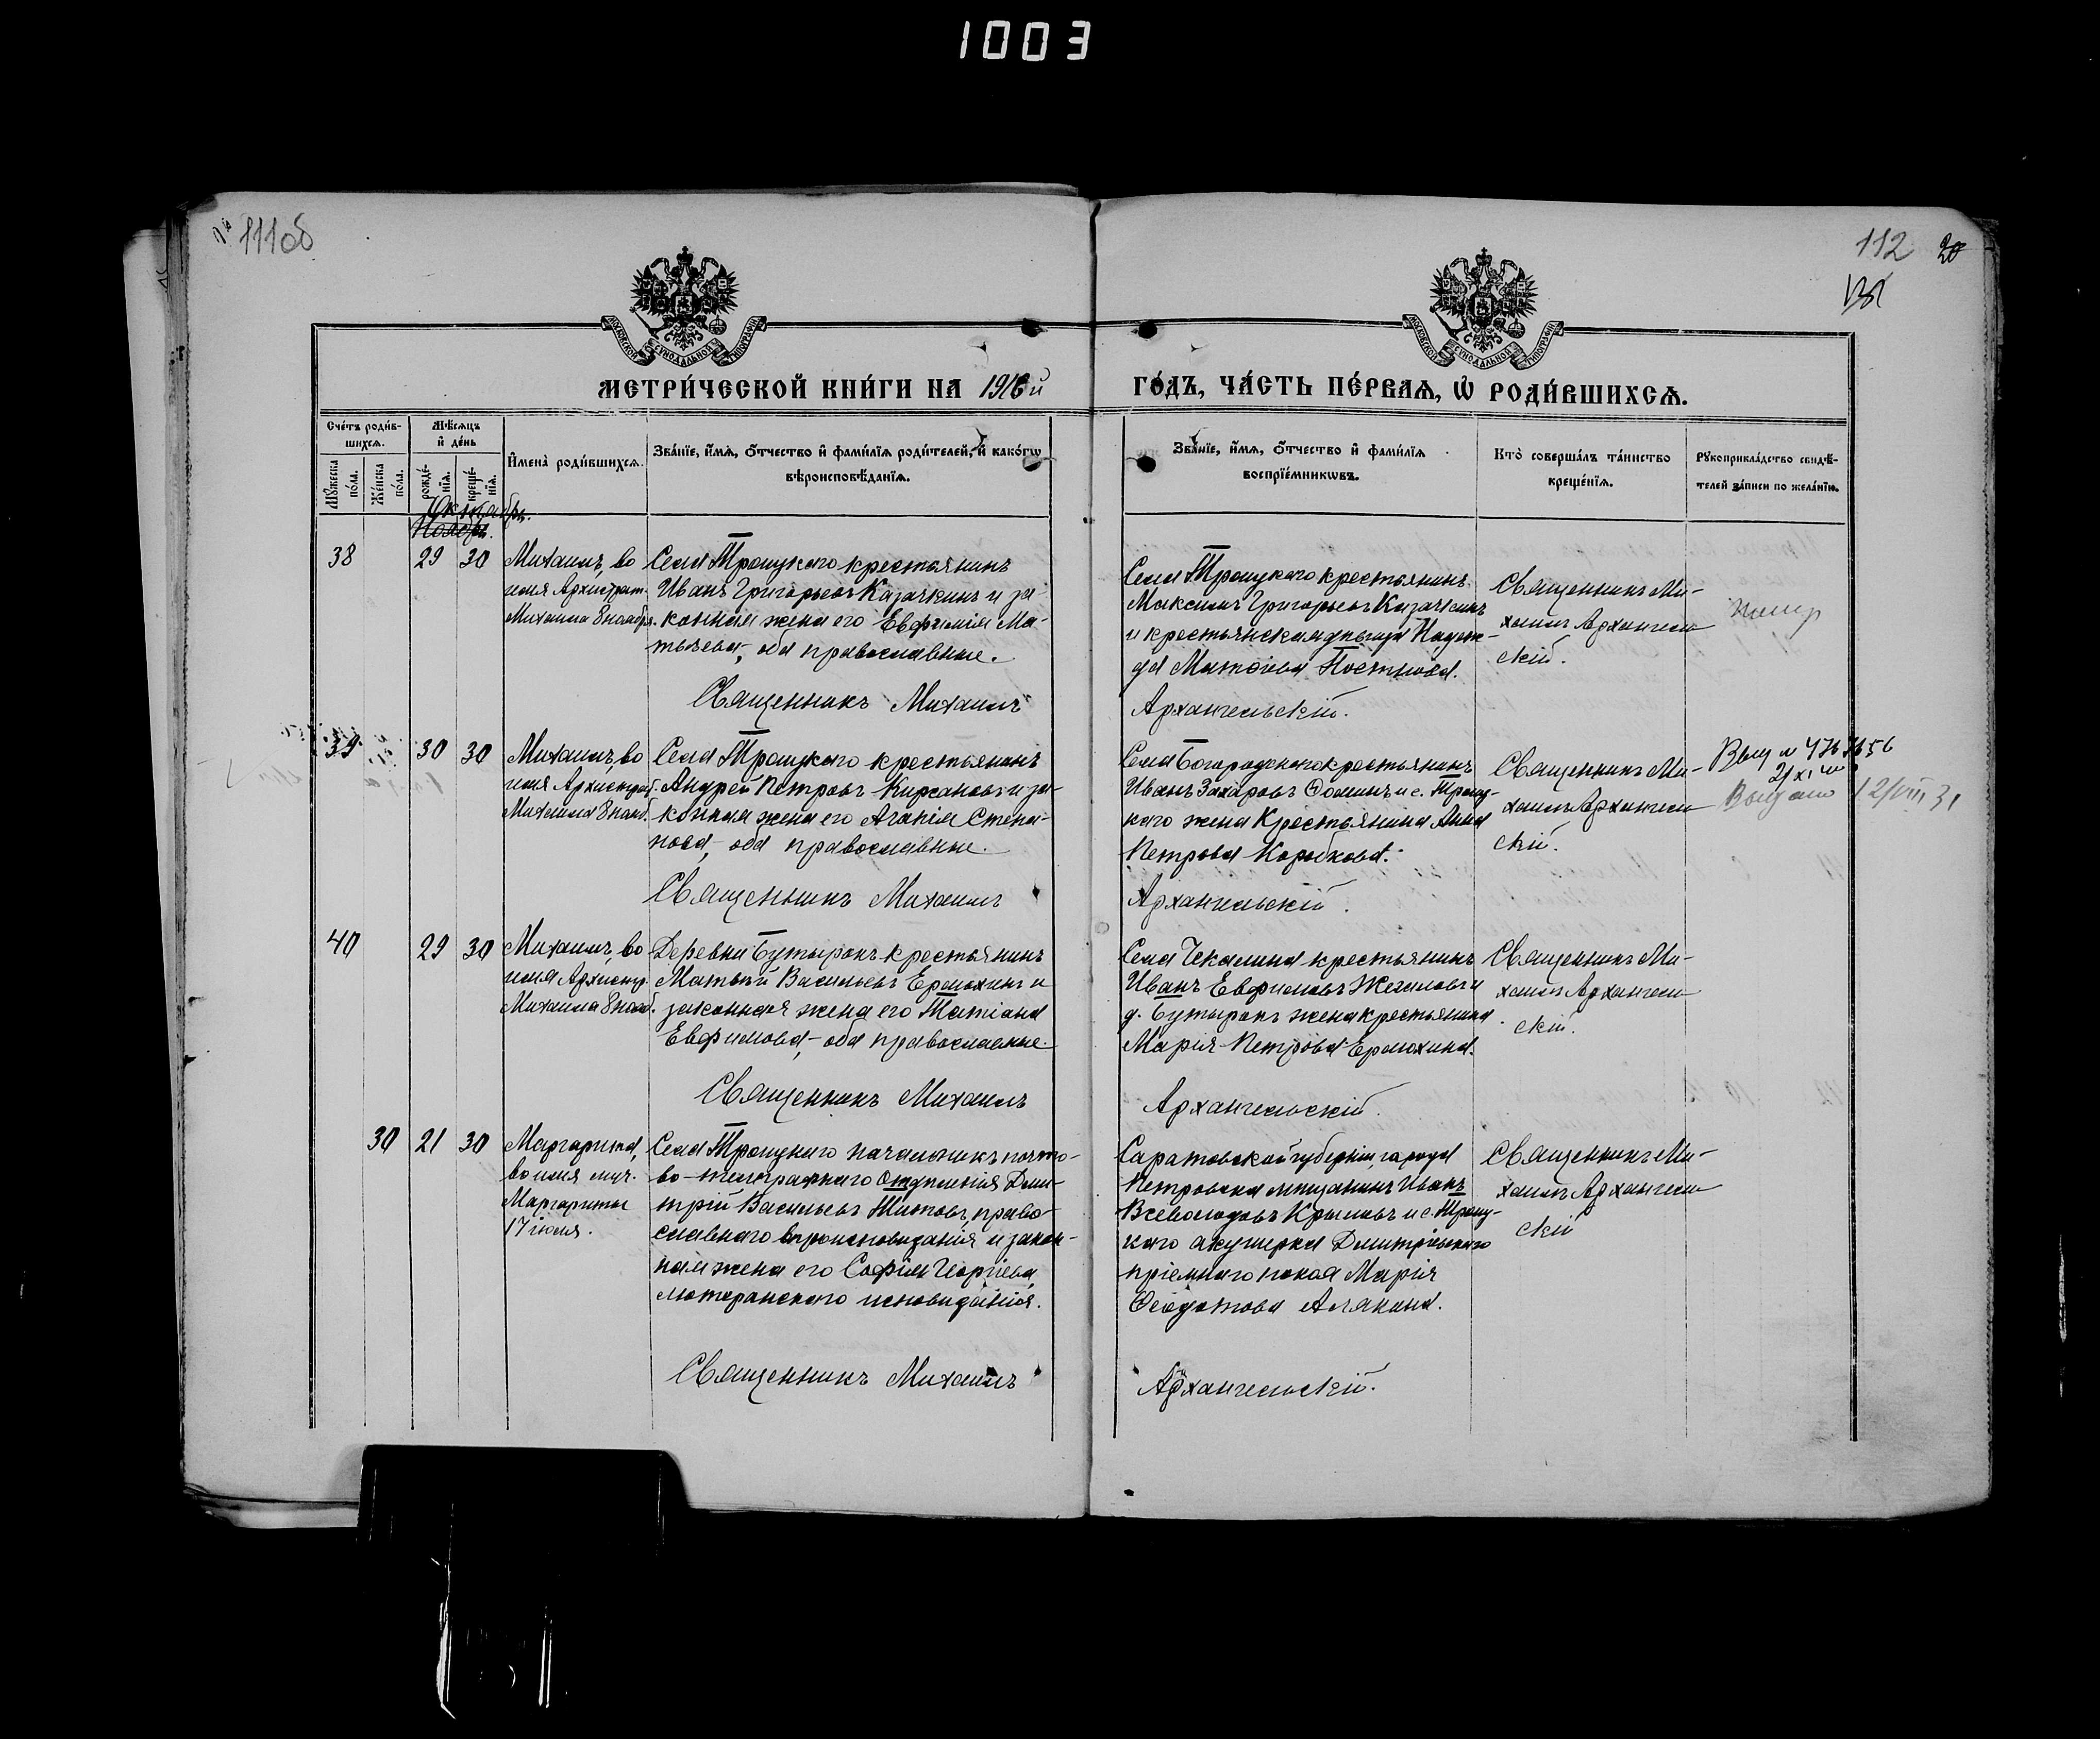 1003
111об
112 20
МОСКОВСКОЙ СѴНОДАЛЬНОЙ ТИПОГРАФІИ
МОСКОВСКОЙ СѴНОДАЛЬНОЙ ТИПОГРАФІИ
МЕТРИ́ЧЕСКОЙ КНИ́ГИ НА 1916й ГО́ДЪ, ЧА́СТЬ ПЕ́РВАЯ, Ѡ҆ РОДИ́ВШИХСѦ.
Счетъ роди́в-
шихсѧ.
Мꙋжеска по́ла.
Же́нска по́ла.
Мѣ́сѧцъ
и҆ де́нь
рожде́-
нїѧ.
креще́-
нїѧ.
И҆мена̀ роди́вшихсѧ.
Зва́нїе, и҆́мѧ, ѻ҆́тчество и҆ фами́лїѧ роди́телей, и҆ како́гѡ
вѣроисповѣ́данїѧ.
Зва́нїе, и҆́мѧ, ѻ҆́тчество и҆ фами́лїѧ
воспрїе́мникѡвъ.
Кто̀ соверша́лъ та́инство
креще́нїѧ.
Рꙋкоприкла́дство свидѣ́-
телей за́писи по жела́нїю.
Октябрь.
Ноябрь.
38 29 30
Михаилъ, во
имя Архистрат.
Михаила 8 ноября.
Села Троицкаго крестьянинъ
Иванъ Григорьевъ Казачкинъ и за-
конная жена его Евфимія Ма-
тѳѣева, оба православные.
Села Троицкаго крестьянинъ
Максимъ Григорьевъ Казачкинъ
и крестьянская дѣвица Надеж-
да Матѳіева Постнова.
Священникъ Ми-
хаилъ Архангель-
скій.
Священникъ Михаилъ Архангельскій.
39 30 30
Михаилъ, во
имя Архистрат.
Михаила 8 нояб.
Села Троицкаго крестьянинъ
Андрей Петровъ Кирсановъ и за-
конная жена его Агапія Степа-
нова, оба православные.
Села Богородскаго крестьянинъ
Иванъ Захаровъ Ѳоминъ и с. Троиц-
каго жена крестьянина Анна
Петрова Коробкова.
Священникъ Ми-
хаилъ Архангель-
скій.
Священникъ Михаилъ Архангельскій.
40 29 30
Михаилъ, во
имя Архистр.
Михаила 8 нояб.
Деревни Бутырокъ крестьянинъ
Матвѣй Васильевъ Ермохинъ и
законная жена его Татіана
Евфимова, оба православные.
Села Чекалина крестьянинъ
Иванъ Евфимовъ Жегаловъ и
д. Бутырокъ жена крестьянина
Марія Петрова Ермохина.
Священникъ Ми-
хаилъ Архангель-
скій.
Священникъ Михаилъ Архангельскій.
30 21 30
Маргарита,
во имя муч.
Маргариты
17 іюля.
Села Троицкаго начальникъ почто-
во-телеграфнаго Отдѣленія Дми-
трій Васильевъ Титовъ, право-
славнаго вѣроисповѣданія и закон-
ная жена его Софія Георгіева
лютеранского исповѣданія.
Саратовской губерніи, города
Петровска мѣщанинъ Иванъ
Всеволодовъ Крыловъ и с. Троиц-
каго акушерка Дмитріевскаго
пріемнаго покоя Марія
Ѳеодотова Алякина.
Священникъ Ми-
хаилъ Архангель-
скій
Священникъ Михаилъ Архангельскій.